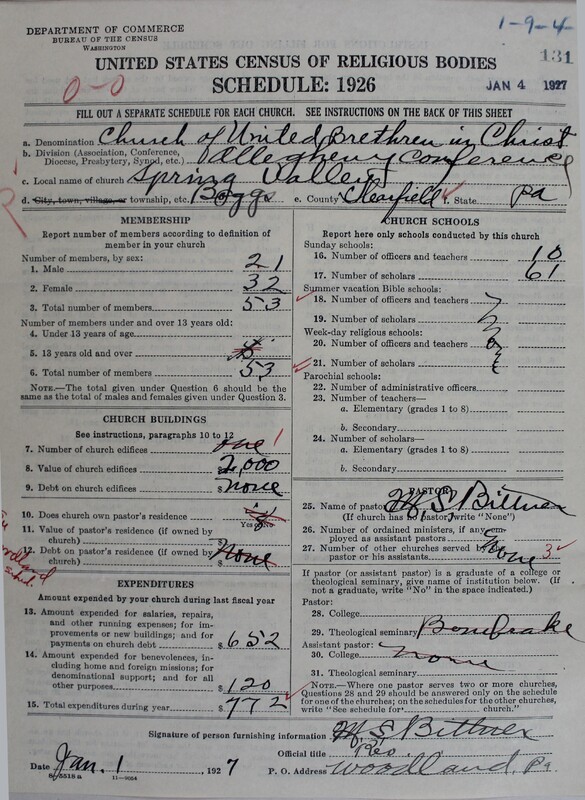 DEPARTMENT OF COMMERCE
BUREAU OF THE CENSUS
WASHINGTON
1-9-4
131
UNITED STATES CENSUS OF RELIGIOUS BODIES
0-0
SCHEDULE: 1926
JAN 4 1927
FILL OUT A SEPARATE SCHEDULE FOR EACH CHURCH. SEE INSTRUCTIONS ON THE BACK OF THIS SHEET
a. Denomination Church of United Brethren in Christ
b. Division (Association, Conference, Diocese, Presbytery, Synod, etc.) Allegheny Conference
c. Local name of church Spring Valley
d. City, town, village, or township, etc. Boggs e. County Clearfield f. State Pa
MEMBERSHIP
Report number of members according to definition of member in your church
Number of members, by sex:
1. Male 21
2. Female 32
3. Total number of members 53
Number of members under and over 13 years old:
4. Under 13 years of age
5. 13 years old and over
6. Total number of members 53
NOTE.—The total given under Question 6 should be the same as the total of males and females given under Question 3.
CHURCH BUILDINGS
See instructions, paragraphs 10 to 12
7. Number of church edifices one 1
8. Value of church edifices $2,000
9. Debt on church edifices $none
10. Does church own pastor's residence
Yes or No
11. Value of pastor's residence (if owned by church) $
12. Debt on pastor's residence (if owned by church) $none
EXPENDITURES
Amount expended by your church during last fiscal year
13. Amount expended for salaries, repairs, and other running expenses; for improvements or new buildings; and for payments on church debt $652
14. Amount expended for benevolences, including home and foreign missions; for denominational support; and for all other purposes $120
15. Total expenditures during year $772
CHURCH SCHOOLS
Report here only schools conducted by this church
Sunday schools:
16. Number of officers and teachers 10
17. Number of scholars 61
Summer vacation Bible schools:
18. Number of officers and teachers
19. Number of scholars
Week-day religious schools:
20. Number of officers and teachers
21. Number of scholars
Parochial schools:
22. Number of administrative officers
23. Number of teachers—
a. Elementary (grades 1 to 8)
b. Secondary
24. Number of scholars—
a. Elementary (grades 1 to 8)
b. Secondary
PASTOR
25. Name of pastor M. S. Bittner
(If church has no pastor, write "None")
26. Number of ordained ministers, if any, employed as assistant pastors
27. Number of other churches served by pastor or his assistants none 3
If pastor (or assistant pastor) is a graduate of a college or theological seminary, give name of institution below. (If not a graduate, write "No" in the space indicated.)
Pastor:
28. College
29. Theological seminary Bonebrake
Assistant pastor:
30. College none
31. Theological seminary
NOTE.—Where one pastor serves two or more churches, Questions 28 and 29 should be answered only on the schedule for one of the churches; on the schedules for the other churches, write "See schedule for church."
Signature of person furnishing information M. S. Bittner
Official title Rev.
Date Jan. 1 1927 P. O. Address Woodland, Pa.
8-5518 a 11-9054